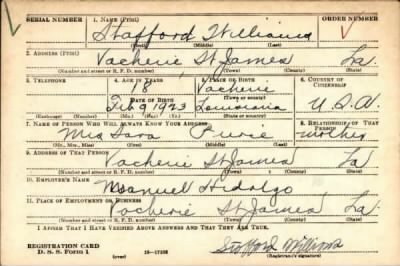 SERIAL NUMBER 1. NAME (Print) ORDER NUMBER
Stafford Williams
(First) (Middle) (Last)
2. ADDRESS (Print)
Vacherie St James La
(Number and street or R. F. D. number) (Town) (County) (State)
3. TELEPHONE 4. AGE IN YEARS 5. PLACE OF BIRTH 6. COUNTRY OF CITIZENSHIP
18 Vacherie
DATE OF BIRTH (Town or county)
Feb 9 1923 Louisiana U.S.A.
(Exchange) (Number) (Mo.) (Day) (Yr.) (State or country)
7. NAME OF PERSON WHO WILL ALWAYS KNOW YOUR ADDRESS 8. RELATIONSHIP OF THAT PERSON
Mrs Sara mother
(Mr., Mrs., Miss) (First) (Middle) (Last)
9. ADDRESS OF THAT PERSON
Vacherie St James La
(Number and street or R. F. D. number) (Town) (County) (State)
10. EMPLOYER'S NAME
Manuel Hidalgo
11. PLACE OF EMPLOYMENT OR BUSINESS
Vacherie St James La.
(Number and street or R. F. D. number) (Town) (County) (State)
I AFFIRM THAT I HAVE VERIFIED ABOVE ANSWERS AND THAT THEY ARE TRUE.
REGISTRATION CARD
D. S. S. Form 1 (over) Stafford Williams
(Registrant's signature)